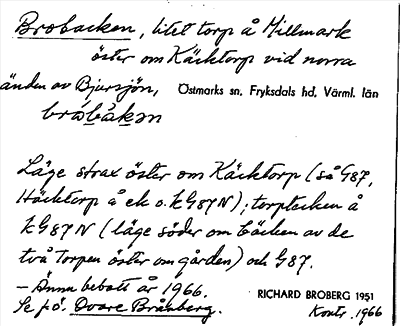 Brobacken, litet torp å Millmark
öster om Käcktorp vid norra
änden av Bjursjön, Östmarks sn. Fryksdals hd. Värml. län
bråbåkən
Läge strax öster om Käcktorp (så G87,
Häcktorp å ek o. kG87N); torptecken å
kG87N (läge söder om bäcken av de
två torpen öster om gården) och G87.
– Ännu bebott år 1966.
Se f.ö. Dvare Bråberg.
RICHARD BROBERG 1951
Kontr. 1966